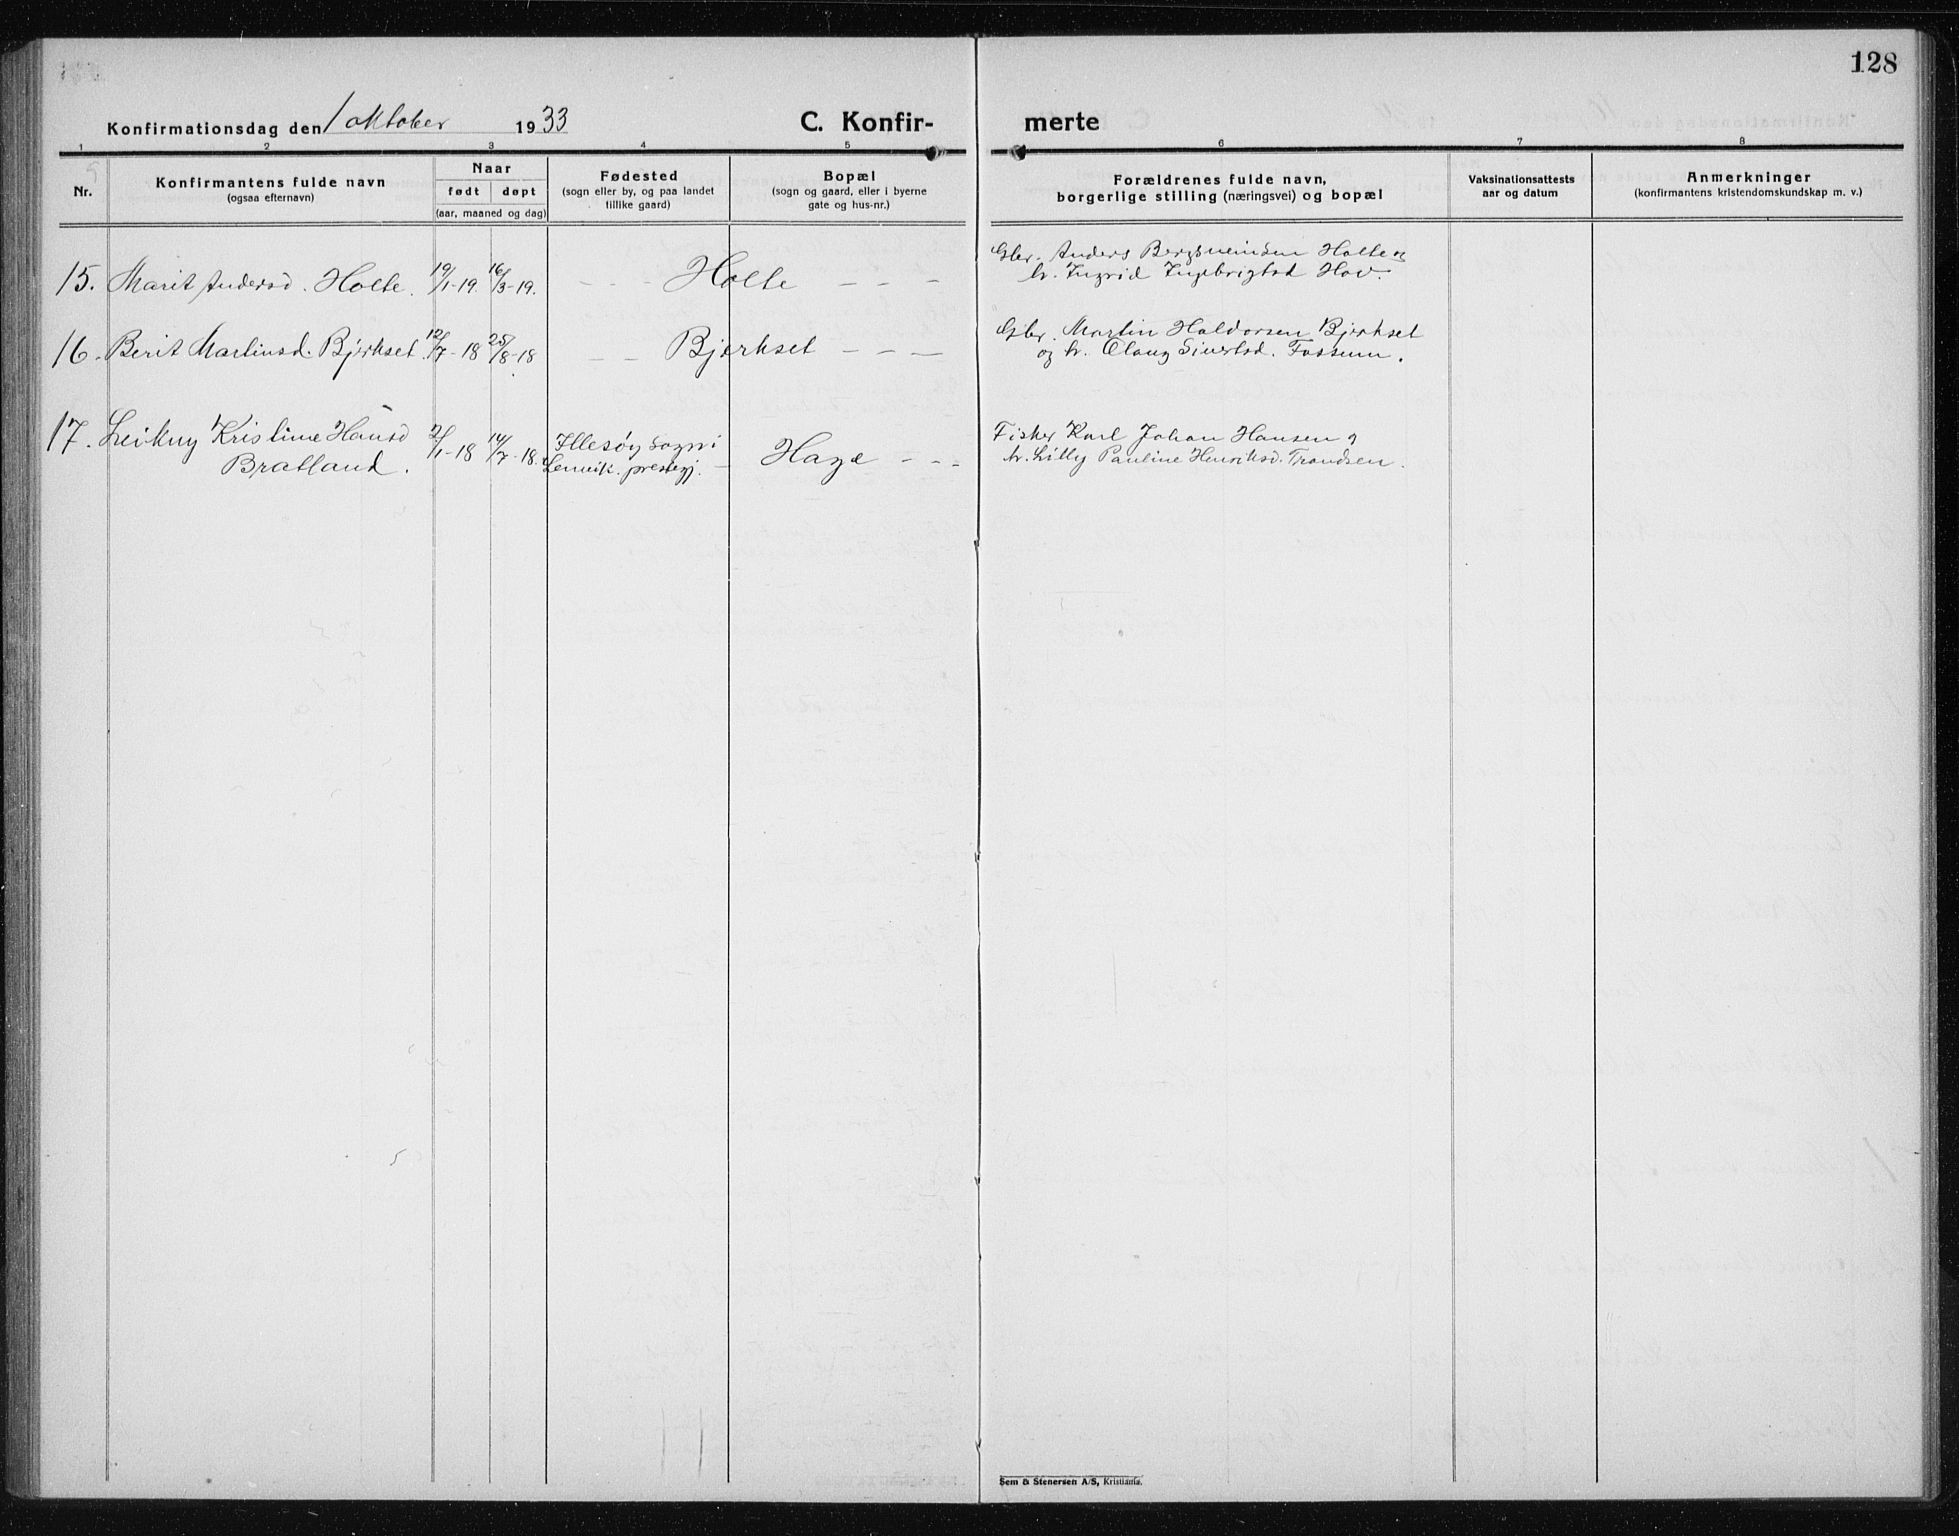 128
Konfirmationsdag den 1 oktober 1933
C. Konfir-
merte
1 2 3 4 5 6 7 8
Nr.
Konfirmantens fulde navn
(ogsaa efternavn)
Naar
født døpt
(aar, maaned og dag)
Fødested
(sogn eller by, og paa landet
tillike gaard)
Bopæl
(sogn og gaard, eller i byerne
gate og hus-nr.)
Forældrenes fulde navn,
borgerlige stilling (næringsvei) og bopæl
Vaksinationsattests
aar og datum
Anmerkninger
(konfirmantens kristendomskundskap m. v.)
15. Marit Andersd. Holte. 19/1-19. 16/3-19. - - - Holte - - -
Gbr. Anders Bergsveinsen Holte og
h. Ingrid Ingebrigtsd Hov.
16. Berit Martinsd. Bjerkset. 12/7-18 25/8-18 - - Bjerkset - - -
Gbr. Martin Haldorsen Bjerkset
og h. Olaug Sivertsd. Fossum.
17. Leikny Kristine Hansd
Bratland. 2/1-18 14/7-18.
Illesøy sogn i
Lenvik prestegj. - Haga - - -
Fisker Karl Johan Hansen og
h. Lilly Pauline Henriksd. Trondsen.
Sem & Stenersen A/S, Kristiania.